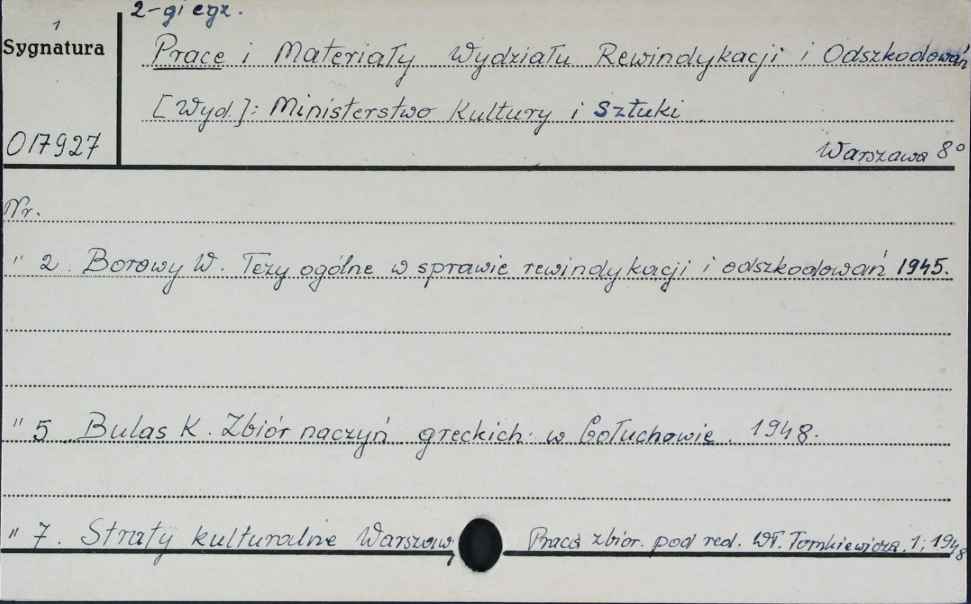 2-gi egz.
1
Sygnatura
Prace i Materiały Wydziału Rewindykacji i Odszkodowań
[Wyd.]: Ministerstwo Kultury i Sztuki
017927
Warszawa 8°
Nr.
" 2. Borowy W. Tezy ogólne w sprawie rewindykacji i odszkodowań 1945.
" 5 Bulas K. Zbiór naczyń greckich w Gołuchowie. 1948.
" 7. Straty kulturalne Warszawy Praca zbior. pod red. Wł. Tomkiewicza. 1; 1948